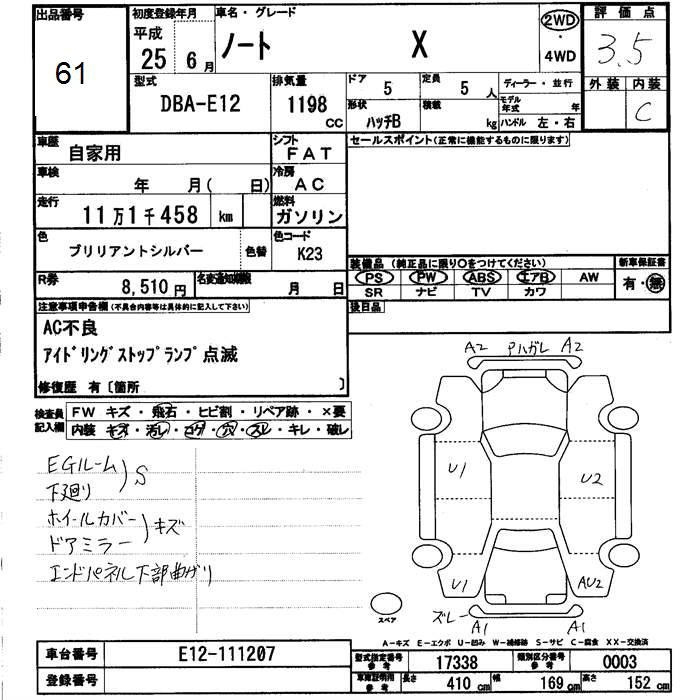 出品番号 61
初度登録年月 平成 25年 6月
車名・グレード ノート X
2WD・4WD
評価点 3.5
型式 DBA-E12
排気量 1198 CC
ドア 5
定員 5 人
形状 ハッチB
積載 kg
ディーラー・並行
モデル年式 年
ハンドル 左・右
外装 内装 C
車歴 自家用
シフト FAT
セールスポイント(正常に機能するものに限ります)
車検 年 月( 日)
冷房 AC
走行 11万1千458 km
燃料 ガソリン
色 ブリリアントシルバー 色替
色コード K23
装備品 (純正品に限り○をつけてください)
新車保証書
PS PW ABS エアB AW
有・無
SR ナビ TV カワ
R券 8,510円
名変通知期限 月 日
後日品
注意事項申告欄(不具合内容等は具体的に記入して下さい)
AC不良
アイドリングストップランプ点滅
修復歴 有〔箇所 〕
検査員記入欄
FW キズ・飛石・ヒビ割・リペア跡・×要
内装 キズ・汚レ・コゲ・穴・スレ・キレ・破レ
EGルーム
下廻り
S
ホイールカバー
ドアミラー
キズ
エンドパネル下部曲がり
A2 P ハガレ A2
U1 U2
U1 AU2
ズレ A1 A1
スペア
A-キズ E-エクボ U-凹み W-補修跡 S-サビ C-腐食 XX-交換済
車台番号 E12-111207
登録番号
型式指定番号 参考 17338
類別区分番号 参考 0003
車庫証明用 参考 長さ 410 cm 幅 169 cm 高さ 152 cm